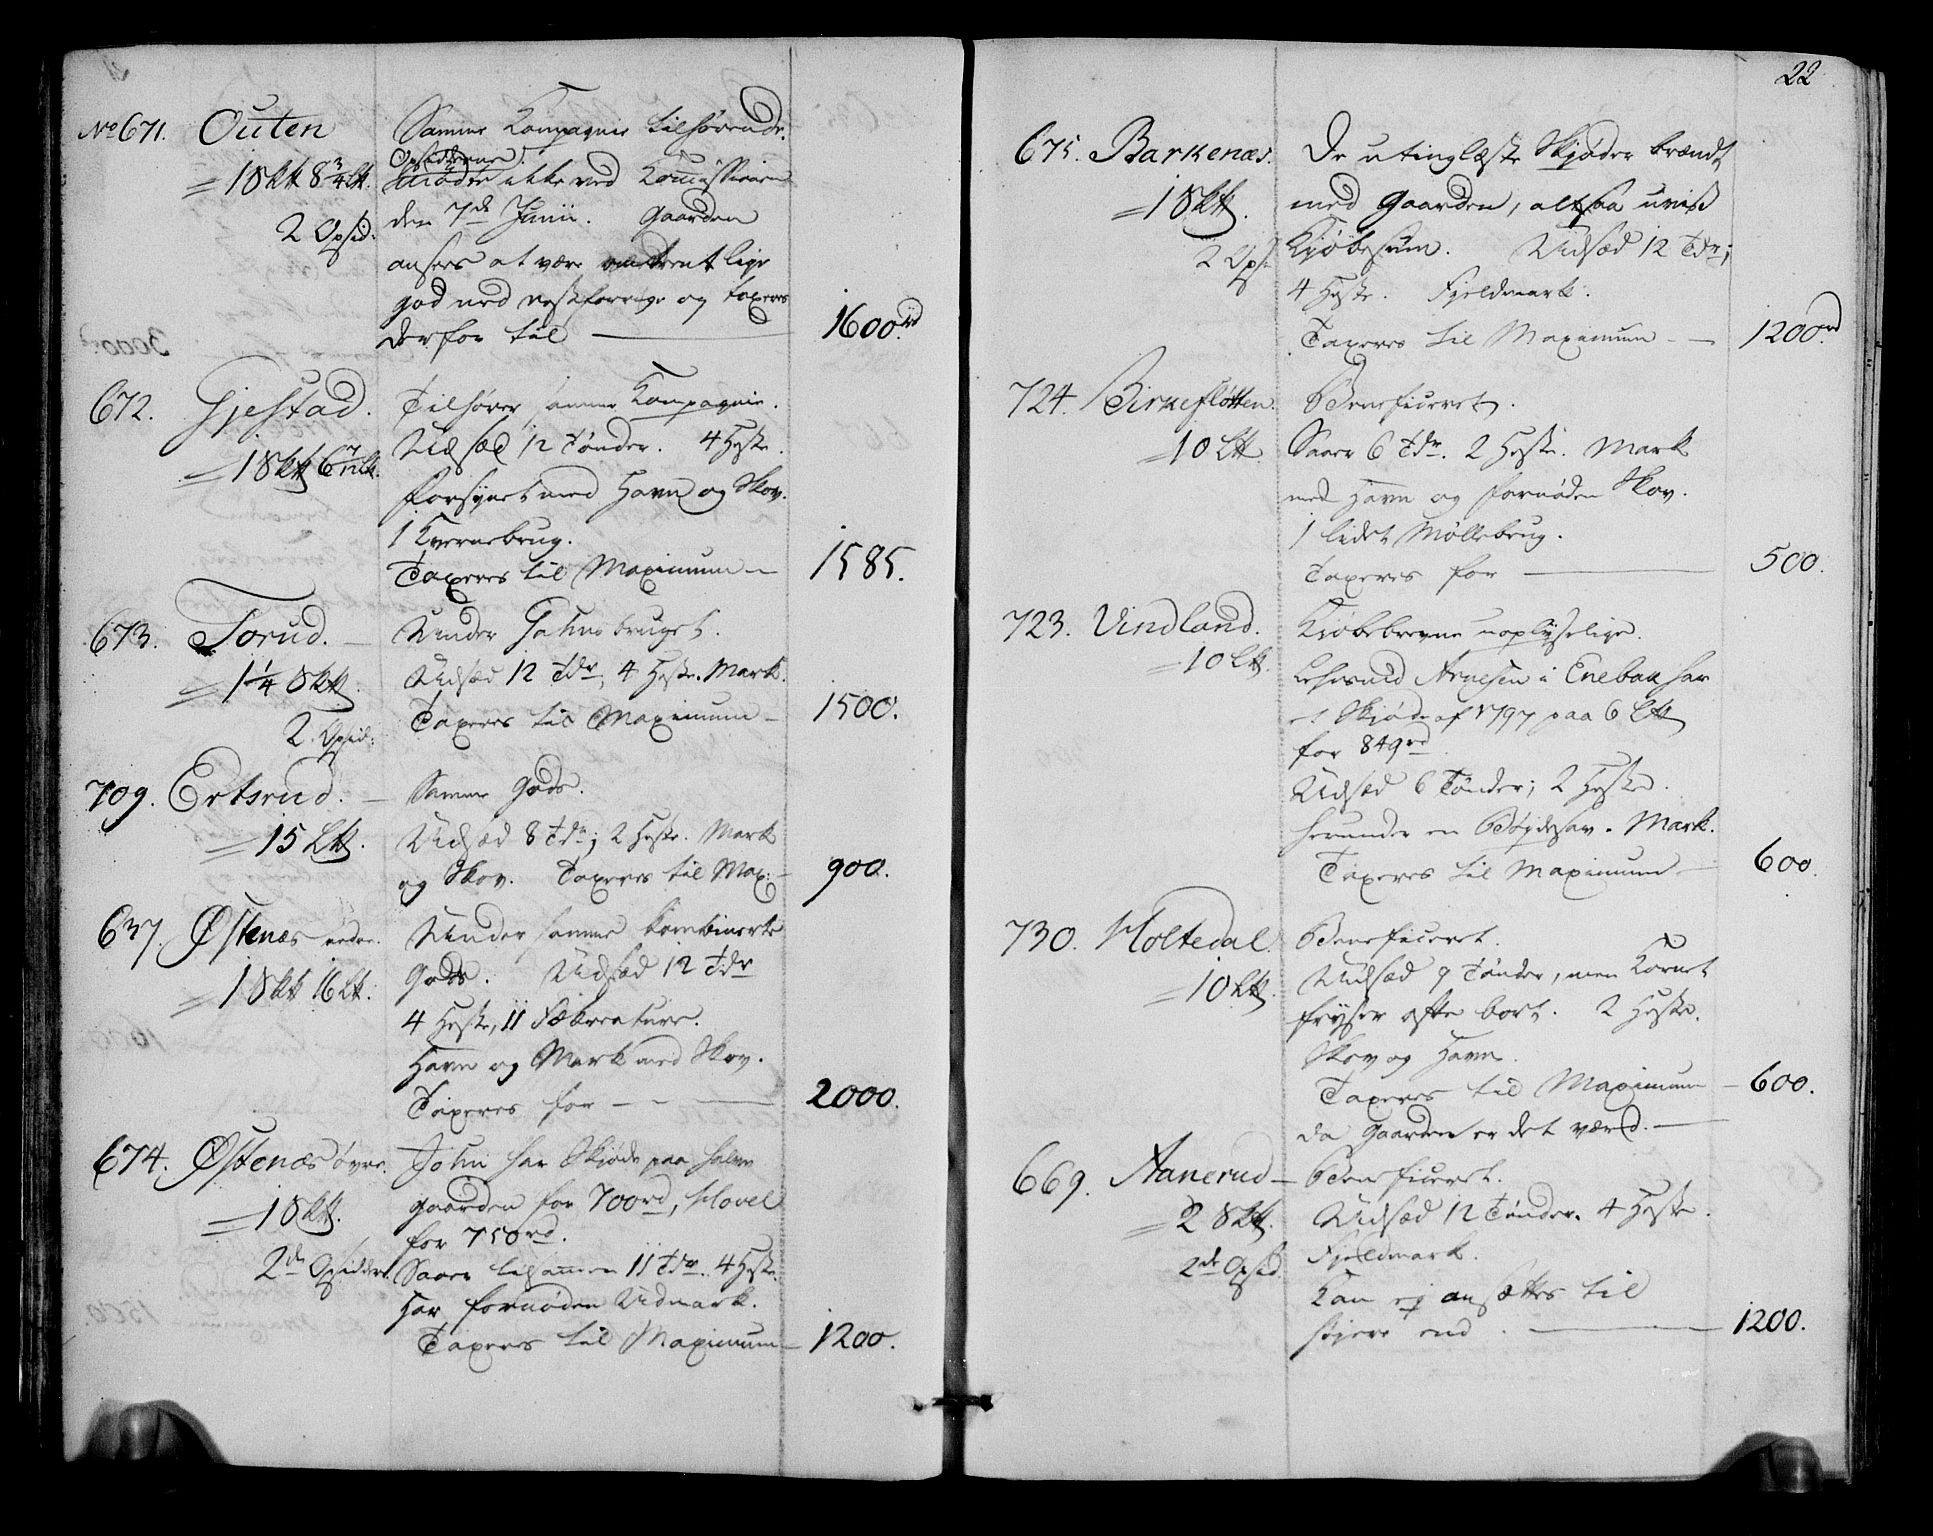 No 671. Outen
1 Sk℔ 8¾ L℔.
2 Opsid:
Samme Kompagnie tilhørende.
Opsidderne
mødte ikke ved Comissionen
den 7de Junii. Gaarden
ansees at være omtrent lige
god med næstforrige og taxeres
derfor til — 1600rd
672. Gjestad.
1 Sk℔ 6 L℔.
Tilhører samme Kompagnie.
Udsæd 12 Tønder. 4 Heste.
forsynet med Havn og Skov.
1 Kvernebrug.
Taxeres til Maximum — 1585.
673. Torud. —
1¼ Sk℔.
2 Opsid:
Under bruget.
Udsæd 12 Tdr, 4 Heste. Mark.
Taxeres til Maximum — 1500.
709. Ertsrud. —
15 L℔.
Samme Gods.
Udsæd 8 Tdr; 2 Heste. Mark
og Skov. Taxeres til Max: — 900.
637. Østenæs nedre.
1 Sk℔ 16 L℔.
Under samme kombinerte
Gods. Udsæd 12 Tdr
4 Heste, 11 Fækreature.
Havn og Mark med Skov.
Taxeres for — — 2000.
674. Østenæs øvre.
1 Sk℔.
2de Opsiddere.
John har Skjøde paa halve
gaarden for 700rd, Hovel
for 750rd.
Saaer tilsammen 11 Tdr. 4 Heste.
Har fornøden Udmark.
Taxeres til Maximum — 1200.
22
675. Barkenæs.
1 Sk℔.
2 Ops.
De utinglæste Skjøder brændt
med Gaarden, altsaa uviss
Kjøbesum. Udsæd 12 Tdr;
4 Heste. Fjeldmark.
Taxeres til Maximum — 1200rd.
724. Birkefløtten.
10 L℔.
Beneficeret.
Saaer 6 Tdr. 2 Heste. Mark
med Havn og fornøden Skov.
1 lidet Møllebrug.
Taxeres for — 500.
723. Vindland.
10 L℔.
Kjøbebrevne uoplyselige.
Arnesen i Enebak har
et Skjøde af 1797 paa 6 L℔
for 849rd.
Udsæd 6 Tønder; 2 Heste.
herunder en Bøgdesav. Mark.
Taxeres til Maximum — 600.
730. Holtedal.
10 L℔.
Beneficeret.
Udsæd 9 Tønder, men Kornet
fryser ofte bort. 2 Heste.
Skov og Havn.
Taxeres til Maximum — 600.
da Gaarden er det værd. —
669. Aanerud —
2 Sk℔.
2de Opsid.
Beneficeret.
Udsæd 12 Tønder. 4 Heste.
Fjeldmark.
Kan ej ansættes til
højere end . — 1200.